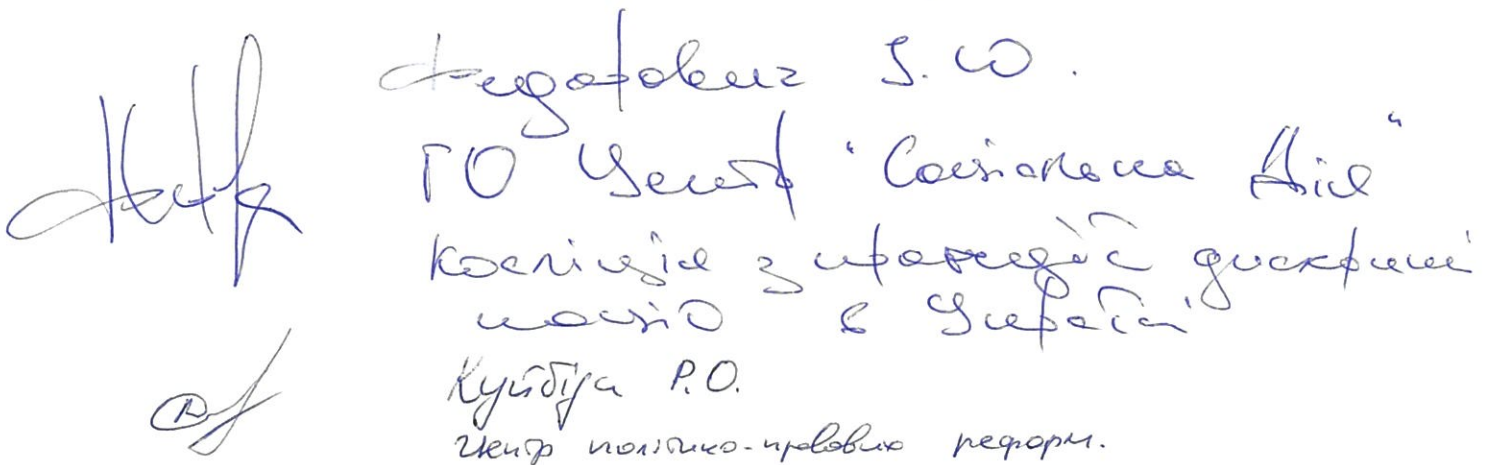 Федорович І.Ю.
ГО Центр "Соціальна Дія"
Коаліція з протидії дискримі
нації в Україні
Куйбіда Р.О.
Центр політико-правових реформ.